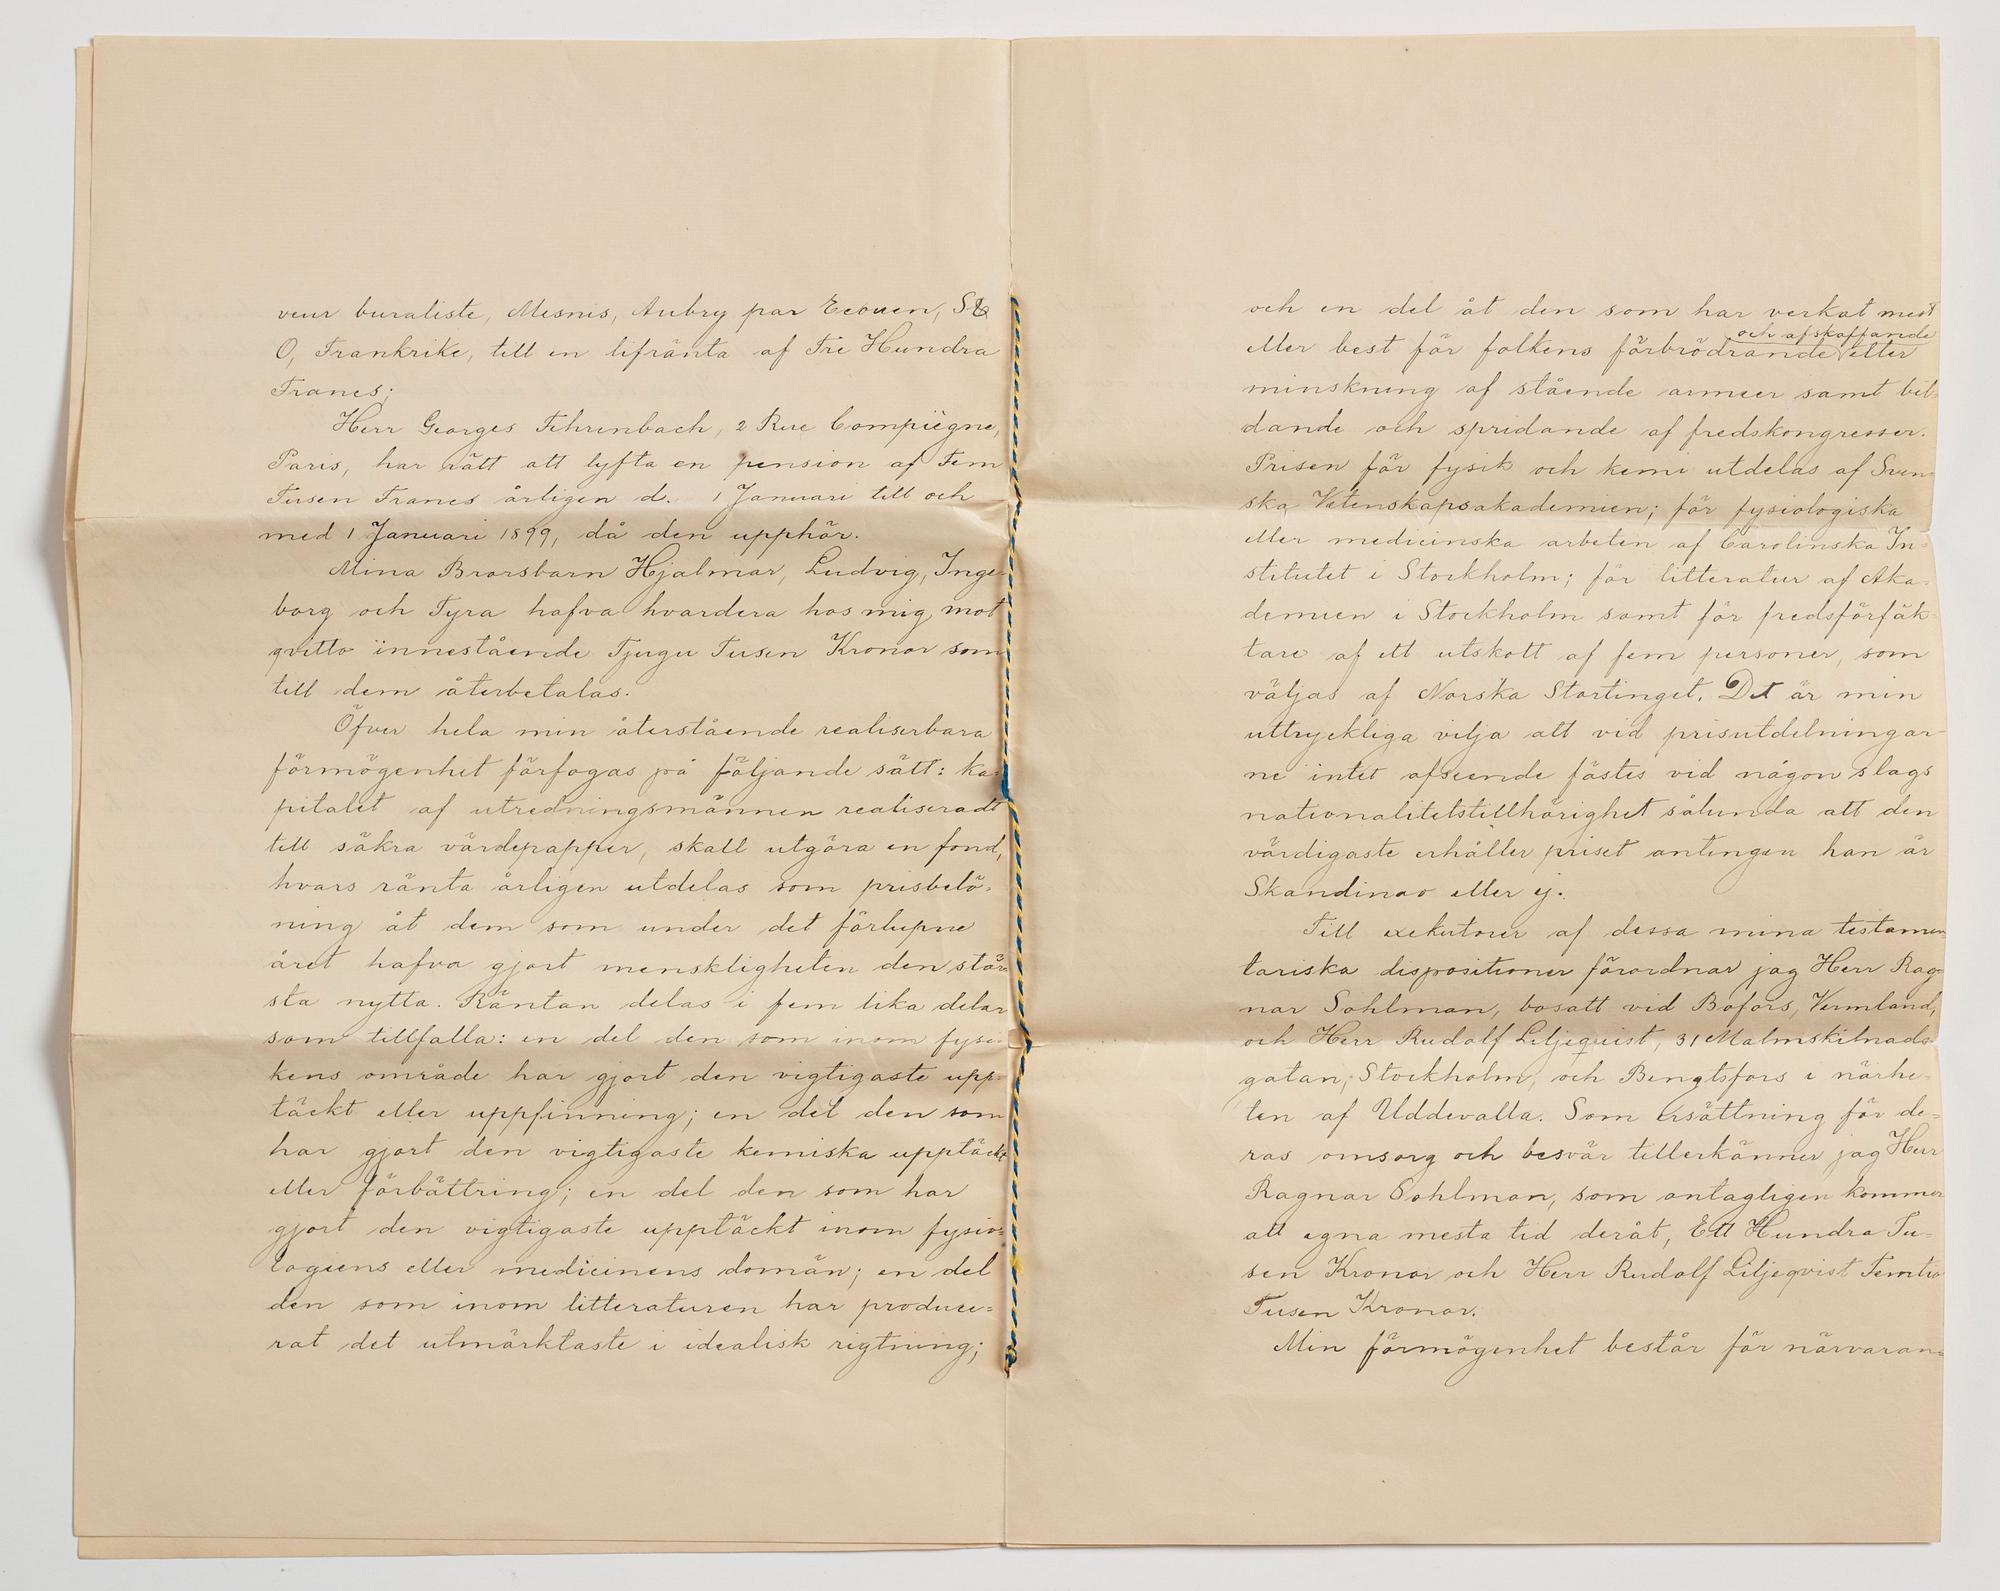 veur buraliste, Mesnis, Aubry par Ecouen, S&
O, Frankrike, till en lifränta af Tre Hundra
Francs;
Herr Georges Fehrenbach, 2 Rue Compiègne,
Paris, har rätt att lyfta en pension af Fem
Tusen Francs årligen d. 1 Januari till och
med 1 Januari 1899, då den upphör.
Mina Brorsbarn Hjalmar, Ludvig, Inge-
borg och Tyra hafva hvardera hos mig, mot
qvitto innestående Tjugu Tusen Kronor som
till dem återbetalas.
Öfver hela min återstående realiserbara
förmögenhet förfogas på följande sätt: ka-
pitalet af utredningsmännen realiseradt
till säkra värdepapper, skall utgöra en fond,
hvars ränta årligen utdelas som prisbelö-
ning åt dem som under det förlupne
året hafva gjort menskligheten den stör-
sta nytta. Räntan delas i fem lika delar
som tillfalla: en del den som inom fysi-
kens område har gjort den vigtigaste upp-
täckt eller uppfinning; en del den som
har gjort den vigtigaste kemiska upptäckt
eller förbättring; en del den som har
gjort den vigtigaste upptäckt inom fysio-
logiens eller medicinens domän; en del
den som inom litteraturen har produce-
rat det utmärktaste i idealisk rigtning;
och en del åt den som har verkat mest
och afskaffande
eller best för folkens förbrödrande eller
minskning af stående armeer samt bil-
dande och spridande af fredskongresser.
Prisen för fysik och kemi utdelas af Sven-
ska Vetenskapsakademien; för fysiologiska
eller medicinska arbeten af Carolinska In-
stitutet i Stockholm; för litteratur af Aka-
demien i Stockholm samt för fredsförfäk-
tare af ett utskott af fem personer, som
väljas af Norska Stortinget. Det är min
uttryckliga vilja att vid prisutdelningar-
ne intet afseende fästes vid någon slags
nationalitetstillhörighet sålunda att den
värdigaste erhåller priset antingen han är
Skandinav eller ej.
Till exekutorer af dessa mina testamen-
tariska dispositioner förordnar jag Herr Rag-
nar Sohlman, bosatt vid Bofors, Vermland,
och Herr Rudolf Liljequist, 31 Malmskilnads-
gatan, Stockholm, och Bengtsfors i närhe-
ten af Uddevalla. Som ersättning för de-
ras omsorg och besvär tillerkänner jag Herr
Ragnar Sohlman, som antagligen kommer
att egna mesta tid deråt, Ett Hundra Tu-
sen Kronor och Herr Rudolf Liljeqvist Femtio
Tusen Kronor.
Min förmögenhet består för närvaran-